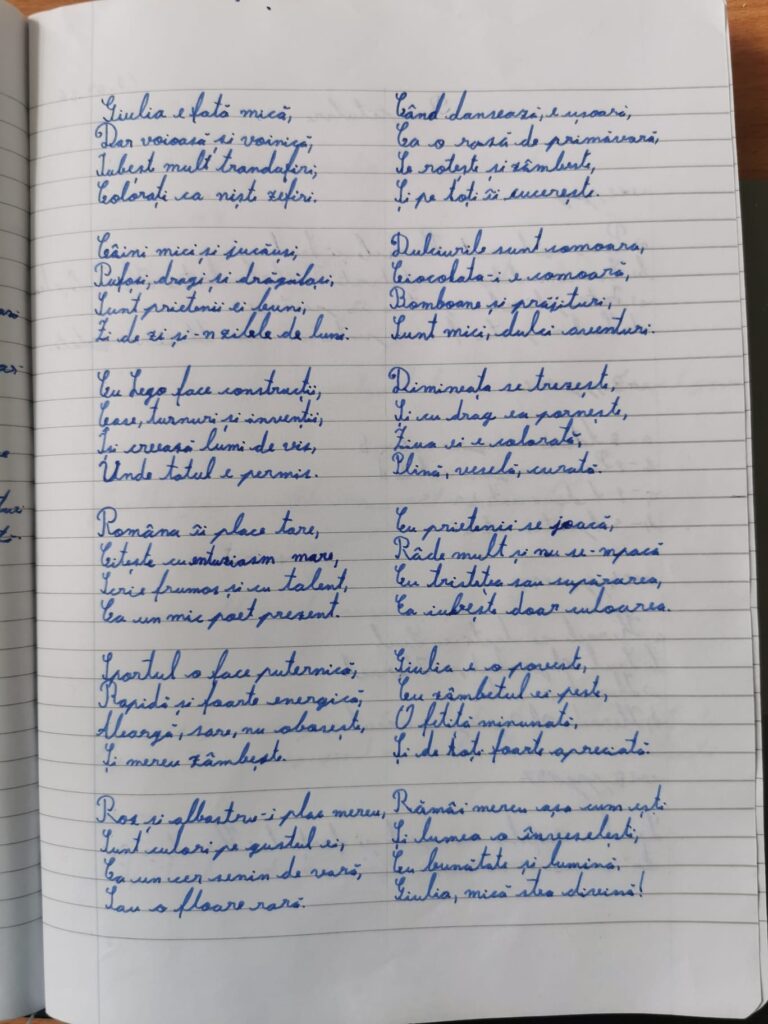 Giulia e fată mică,
Dar voioasă și voinică,
Iubește mult trandafiri,
Colorați ca niște zefiri.
Câini mici și jucăuși,
Pufoși, dragi și drăgălași,
Sunt prietenii ei buni,
Zi de zi și-n zilele de luni.
Cu Lego face construcții,
Case, turnuri și invenții,
Își creează lumi de vis,
Unde totul e permis.
Româna îi place tare,
Citește cu enturiasm mare,
Scrie frumos și cu talent,
Ca un mic poet prezent.
Sportul o face puternică,
Rapidă și foarte energică,
Aleargă, sare, nu obosește,
Și mereu zâmbește.
Roz și albastru-i plac mereu,
Sunt culori pe gustul ei,
Ca un cer senin de vară,
Sau o floare rară.
Când dansează, e ușoară,
Ca o rază de primăvară,
Se rotește și zâmbește,
Și pe toți îi cucerește.
Dulciurile sunt comoara,
Ciocolata-i e comoară,
Bomboane și prăjituri,
Sunt mici, dulci aventuri.
Dimineața se trezește,
Și cu drag ea pornește,
Ziua ei e colorată,
Plină, veselă, curată.
Cu prietenii se joacă,
Râde mult și nu se-mpacă
Cu tristețea sau supărarea,
Ea iubește doar culoarea.
Giulia e o poveste,
Cu zâmbetul ei peste,
O fetiță minunată,
Și de toți foarte apreciată.
Rămâi mereu așa cum ești
Și lumea o înveselești,
Cu bunătate și lumină,
Giulia, mică stea divină!